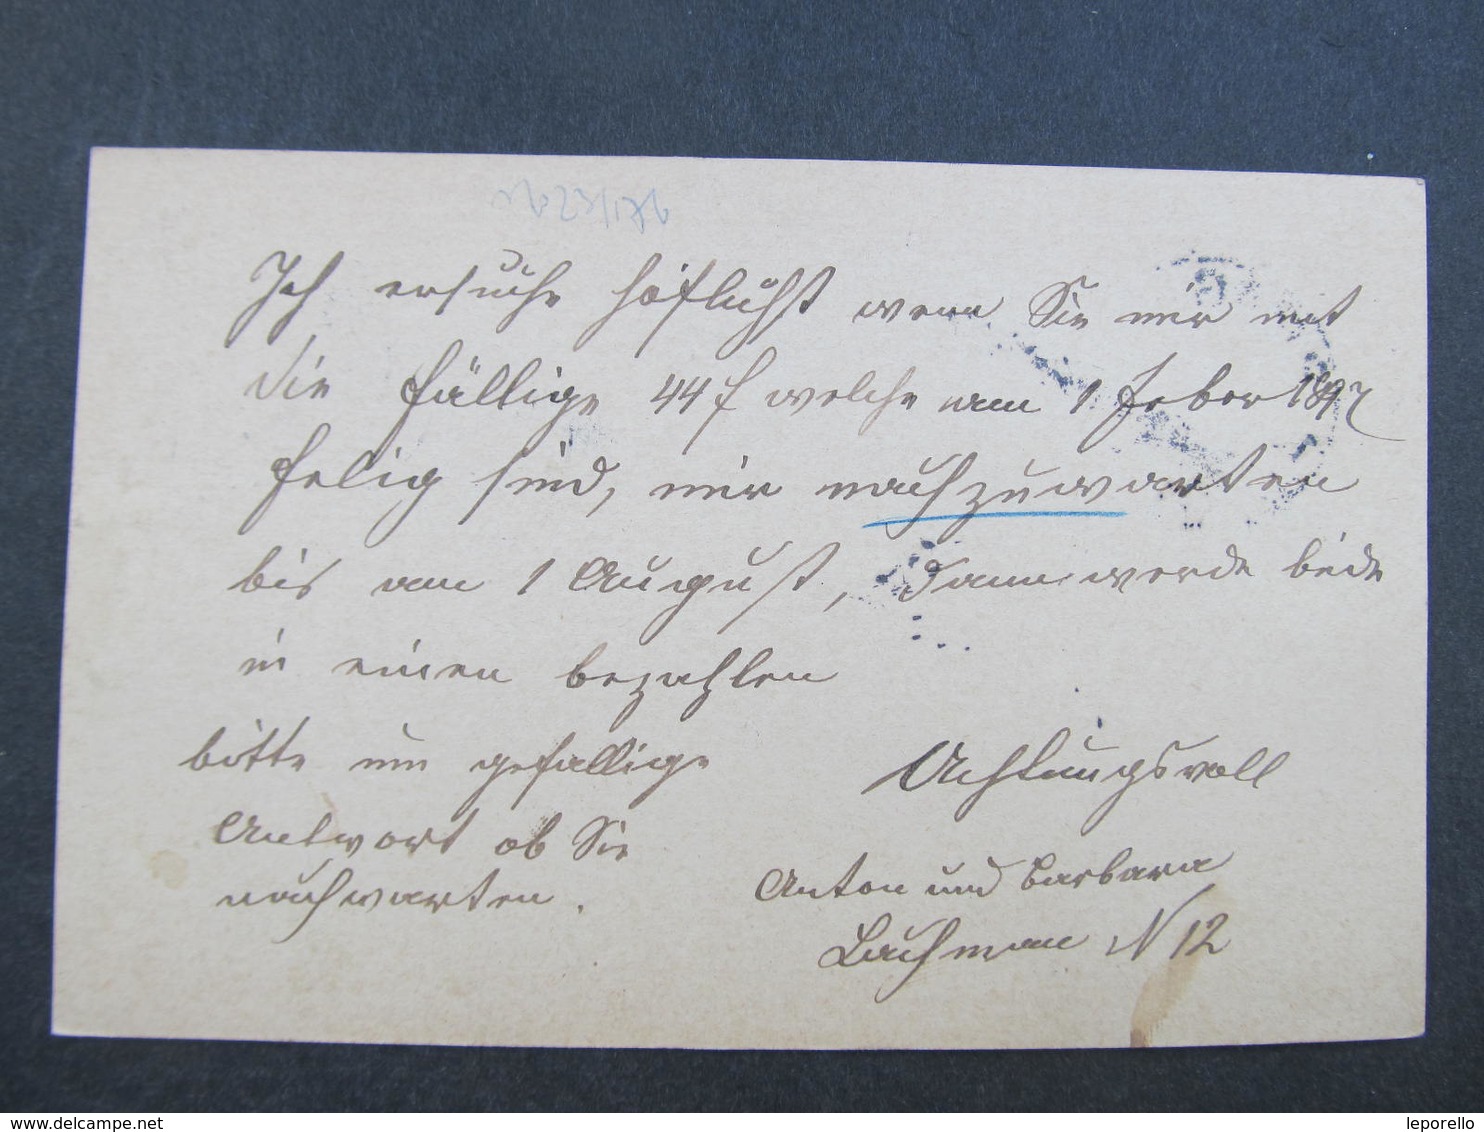 Ich ersuche höflichst wenn Sie mir mit
die fällige 44 f welche am 1 Feber 1897
felig sind, mir nachzuwarten
bis am 1 August, dann werde beide
in einen bezahlen
bitte um gefallige
Antwort ob Sie
nachwarten.
Achtungsvoll
Anton und Barbara
Lachman N 12
leporello